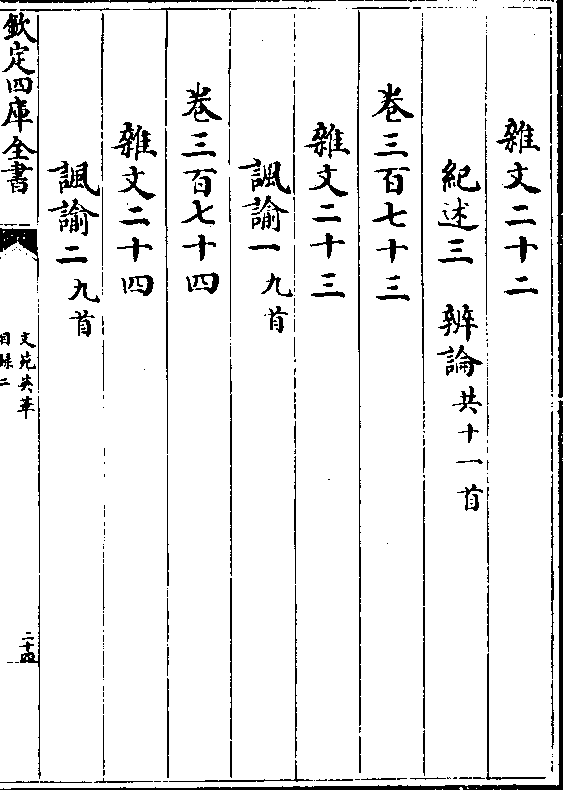 雜文二十二
紀述三　辨論共十一首
卷三百七十三
雜文二十三
諷諭一九首
卷三百七十四
雜文二十四
諷諭二九首
欽定四庫全書
文苑英華
目錄二
二十四